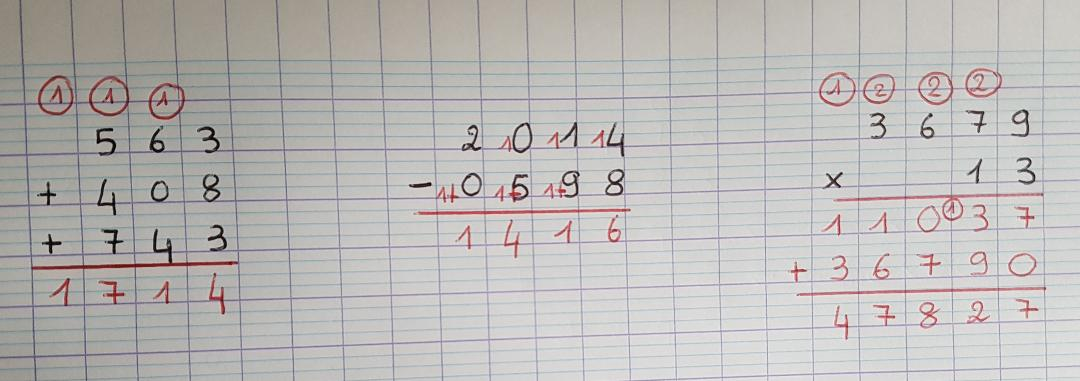 1 1 1
5 6 3
+ 4 0 8
+ 7 4 3
1 7 1 4
2 10 11 14
- 1+0 1+5 1+9 8
1 4 1 6
1 2 2 2
3 6 7 9
x 1 3
1 1 0 1 3 7
+ 3 6 7 9 0
4 7 8 2 7